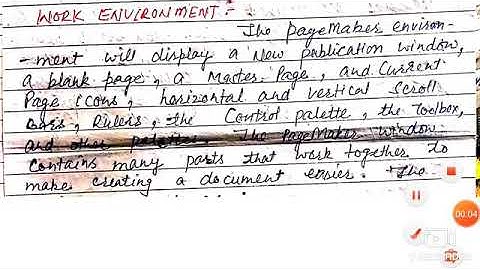 WORK ENVIRONMENT:-
The PageMaker Environ-
-ment will display a New publication window,
a blank page, a Master Page, and Current
Page icons, horizontal and vertical scroll
bars, Rulers, the Control palette, the Toolbox,
and other palettes. The PageMaker window
contains many parts that work together to
make creating a document easier. The
00:04